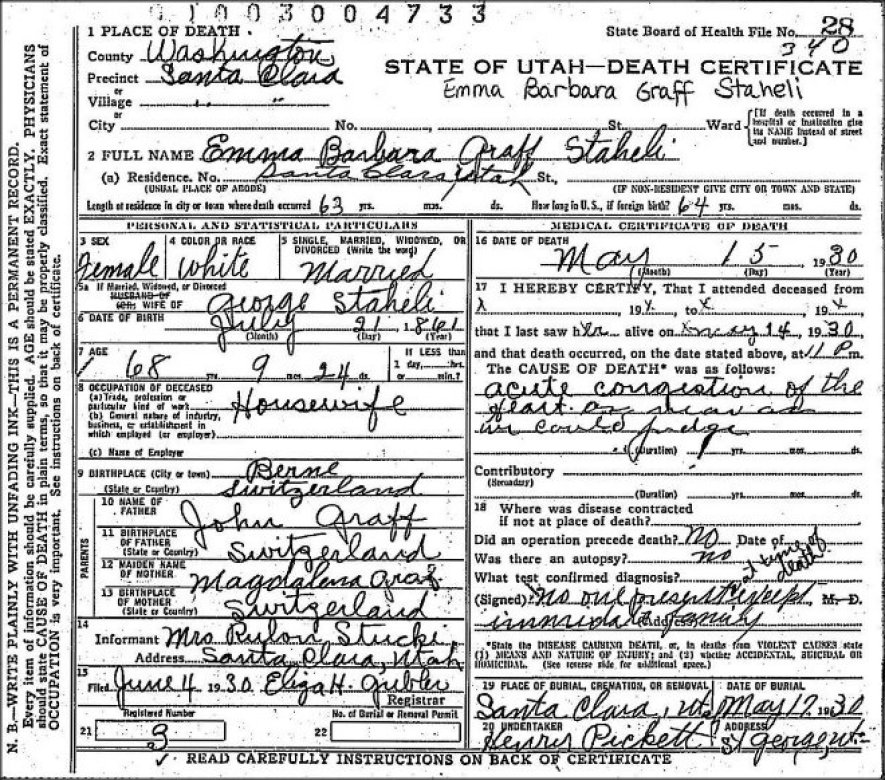 01003004733
1 PLACE OF DEATH
State Board of Health File No. 28
340
County Washington
Precinct Santa Clara
or
Village " "
or
City No. St. Ward
STATE OF UTAH—DEATH CERTIFICATE
Emma Barbara Graff Staheli
[If death occurred in a
hospital or institution give
its NAME instead of street
and number.]
2 FULL NAME Emma Barbara Graff Staheli
(a) Residence. No. Santa Clara Utah St.,
(USUAL PLACE OF ABODE) (IF NON-RESIDENT GIVE CITY OR TOWN AND STATE)
Length of residence in city or town where death occurred 63 yrs. mos. ds. How long in U.S., if foreign birth? 64 yrs. mos. ds.
PERSONAL AND STATISTICAL PARTICULARS
3 SEX 4 COLOR OR RACE 5 SINGLE, MARRIED, WIDOWED, OR
DIVORCED (Write the word)
Female White Married
5a If Married, Widowed, or Divorced
HUSBAND OF
(or) WIFE OF George Staheli
6 DATE OF BIRTH July 21 1861
(Month) (Day) (Year)
7 AGE IF LESS than
68 9 mos. 24 ds. 1 day, hrs.
or min.?
8 OCCUPATION OF DECEASED
(a) Trade, profession or
particular kind of work Housewife
(b) General nature of industry,
business, or establishment in
which employed (or employer)
(c) Name of Employer
9 BIRTHPLACE (City or town) Berne
(State or Country) Switzerland
PARENTS
10 NAME OF
FATHER John Graff
11 BIRTHPLACE
OF FATHER
(State or Country) Switzerland
12 MAIDEN NAME
OF MOTHER Magdalena Graf
13 BIRTHPLACE
OF MOTHER
(State or Country) Switzerland
14
Informant Mrs Rulon Stucki
Address Santa Clara, Utah
15
Filed June 4 1930 Eliza H. Gubler
Registrar
Registered Number No. of Burial or Removal Permit
21 3 22
MEDICAL CERTIFICATE OF DEATH
16 DATE OF DEATH
May 15 1930
(Month) (Day) (Year)
17 I HEREBY CERTIFY, That I attended deceased from
x 19x, to x 19x
that I last saw her alive on May 14, 1930
and that death occurred, on the date stated above, at 11 P.m.
The CAUSE OF DEATH* was as follows:
acute congestion of the
heart as near as
we could judge
(Duration) yrs. mos. ds.
Contributory
(Secondary)
(Duration) yrs. mos. ds.
18 Where was disease contracted
if not at place of death?
Did an operation precede death? No Date of
Was there an autopsy? no
What test confirmed diagnosis?
at time of
death
(Signed) No one present except M. D.
immediate family
(Address)
*State the DISEASE CAUSING DEATH, or, in deaths from VIOLENT CAUSES state
(1) MEANS AND NATURE OF INJURY; and (2) whether ACCIDENTAL, SUICIDAL OR
HOMICIDAL. (See reverse side for additional space.)
19 PLACE OF BURIAL, CREMATION, OR REMOVAL DATE OF BURIAL
Santa Clara, Ut May 17 1930
20 UNDERTAKER ADDRESS
Henry Pickett St George Ut
READ CAREFULLY INSTRUCTIONS ON BACK OF CERTIFICATE
N. B.—WRITE PLAINLY WITH UNFADING INK—THIS IS A PERMANENT RECORD.
Every item of information should be carefully supplied. AGE should be stated EXACTLY. PHYSICIANS
should state CAUSE OF DEATH in plain terms, so that it may be properly classified. Exact statement of
OCCUPATION is very important. See instructions on back of certificate.